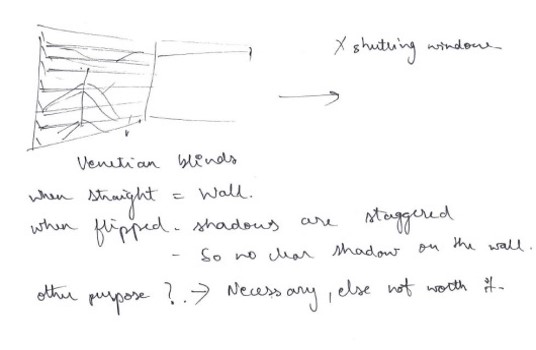 X shutting window
Venetian blinds
when straight = Wall.
when flipped - shadows are staggered
- So no clear shadow on the wall.
other purpose ? → Necessary, else not worth it.